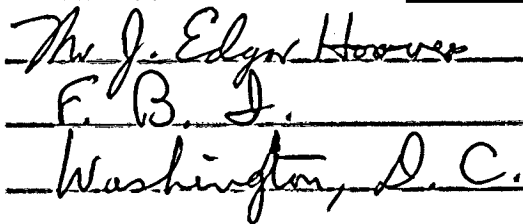 Mr J. Edgar Hoover
F. B. I.
Washington, D. C.